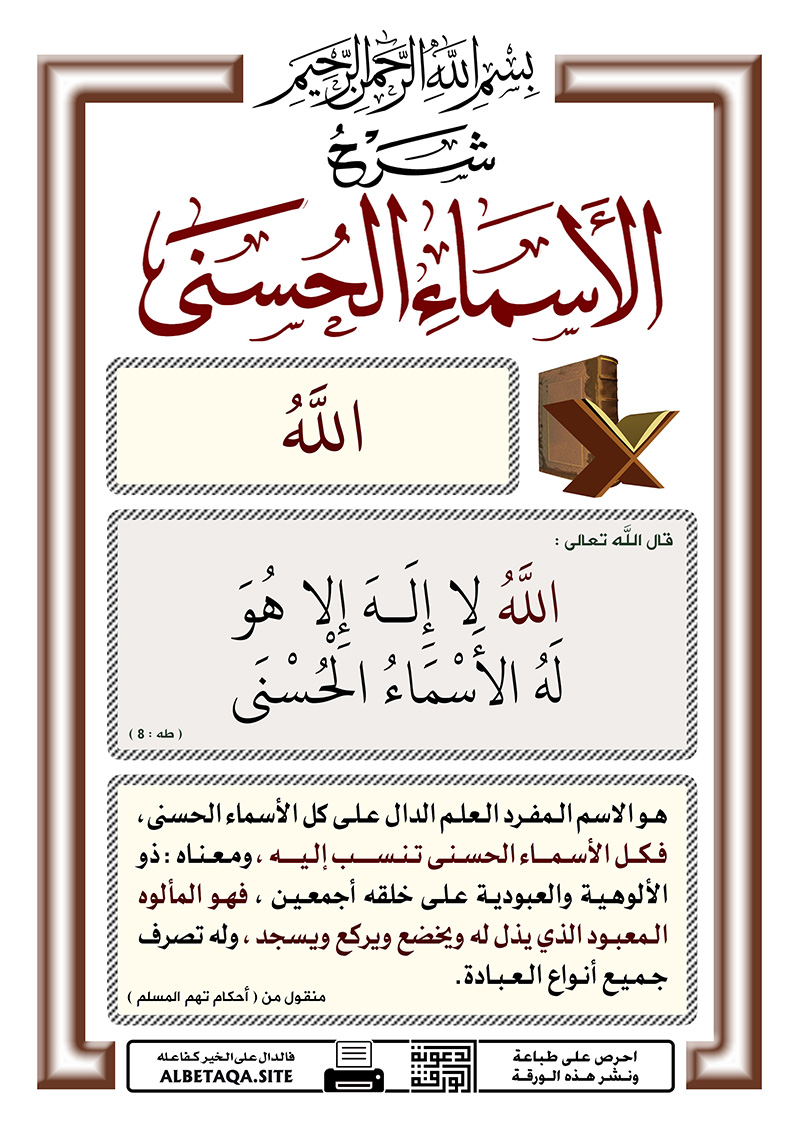 بِسْمِ اللَّهِ الرَّحْمَنِ الرَّحِيمِ
شَرْحُ
الأَسْمَاءِ الحُسْنَى
اللَّهُ
قال اللَّه تعالى :
اللَّهُ لا إِلَـهَ إِلا هُوَ
لَهُ الأَسْمَاءُ الْحُسْنَى
( طه : 8 )
هو الاسم المفرد العلم الدال على كل الأسماء الحسنى ،
فكل الأسماء الحسنى تنسب إليه ، ومعناه : ذو
الألوهية والعبودية على خلقه أجمعين ، فهو المألوه
المعبود الذي يذل له ويخضع ويركع ويسجد ، وله تصرف
جميع أنواع العبادة .
منقول من ( أحكام تهم المسلم )
احرص على طباعة
ونشر هذه الورقة
الورقة
الدعوية
فالدال على الخير كفاعله
ALBETAQA.SITE